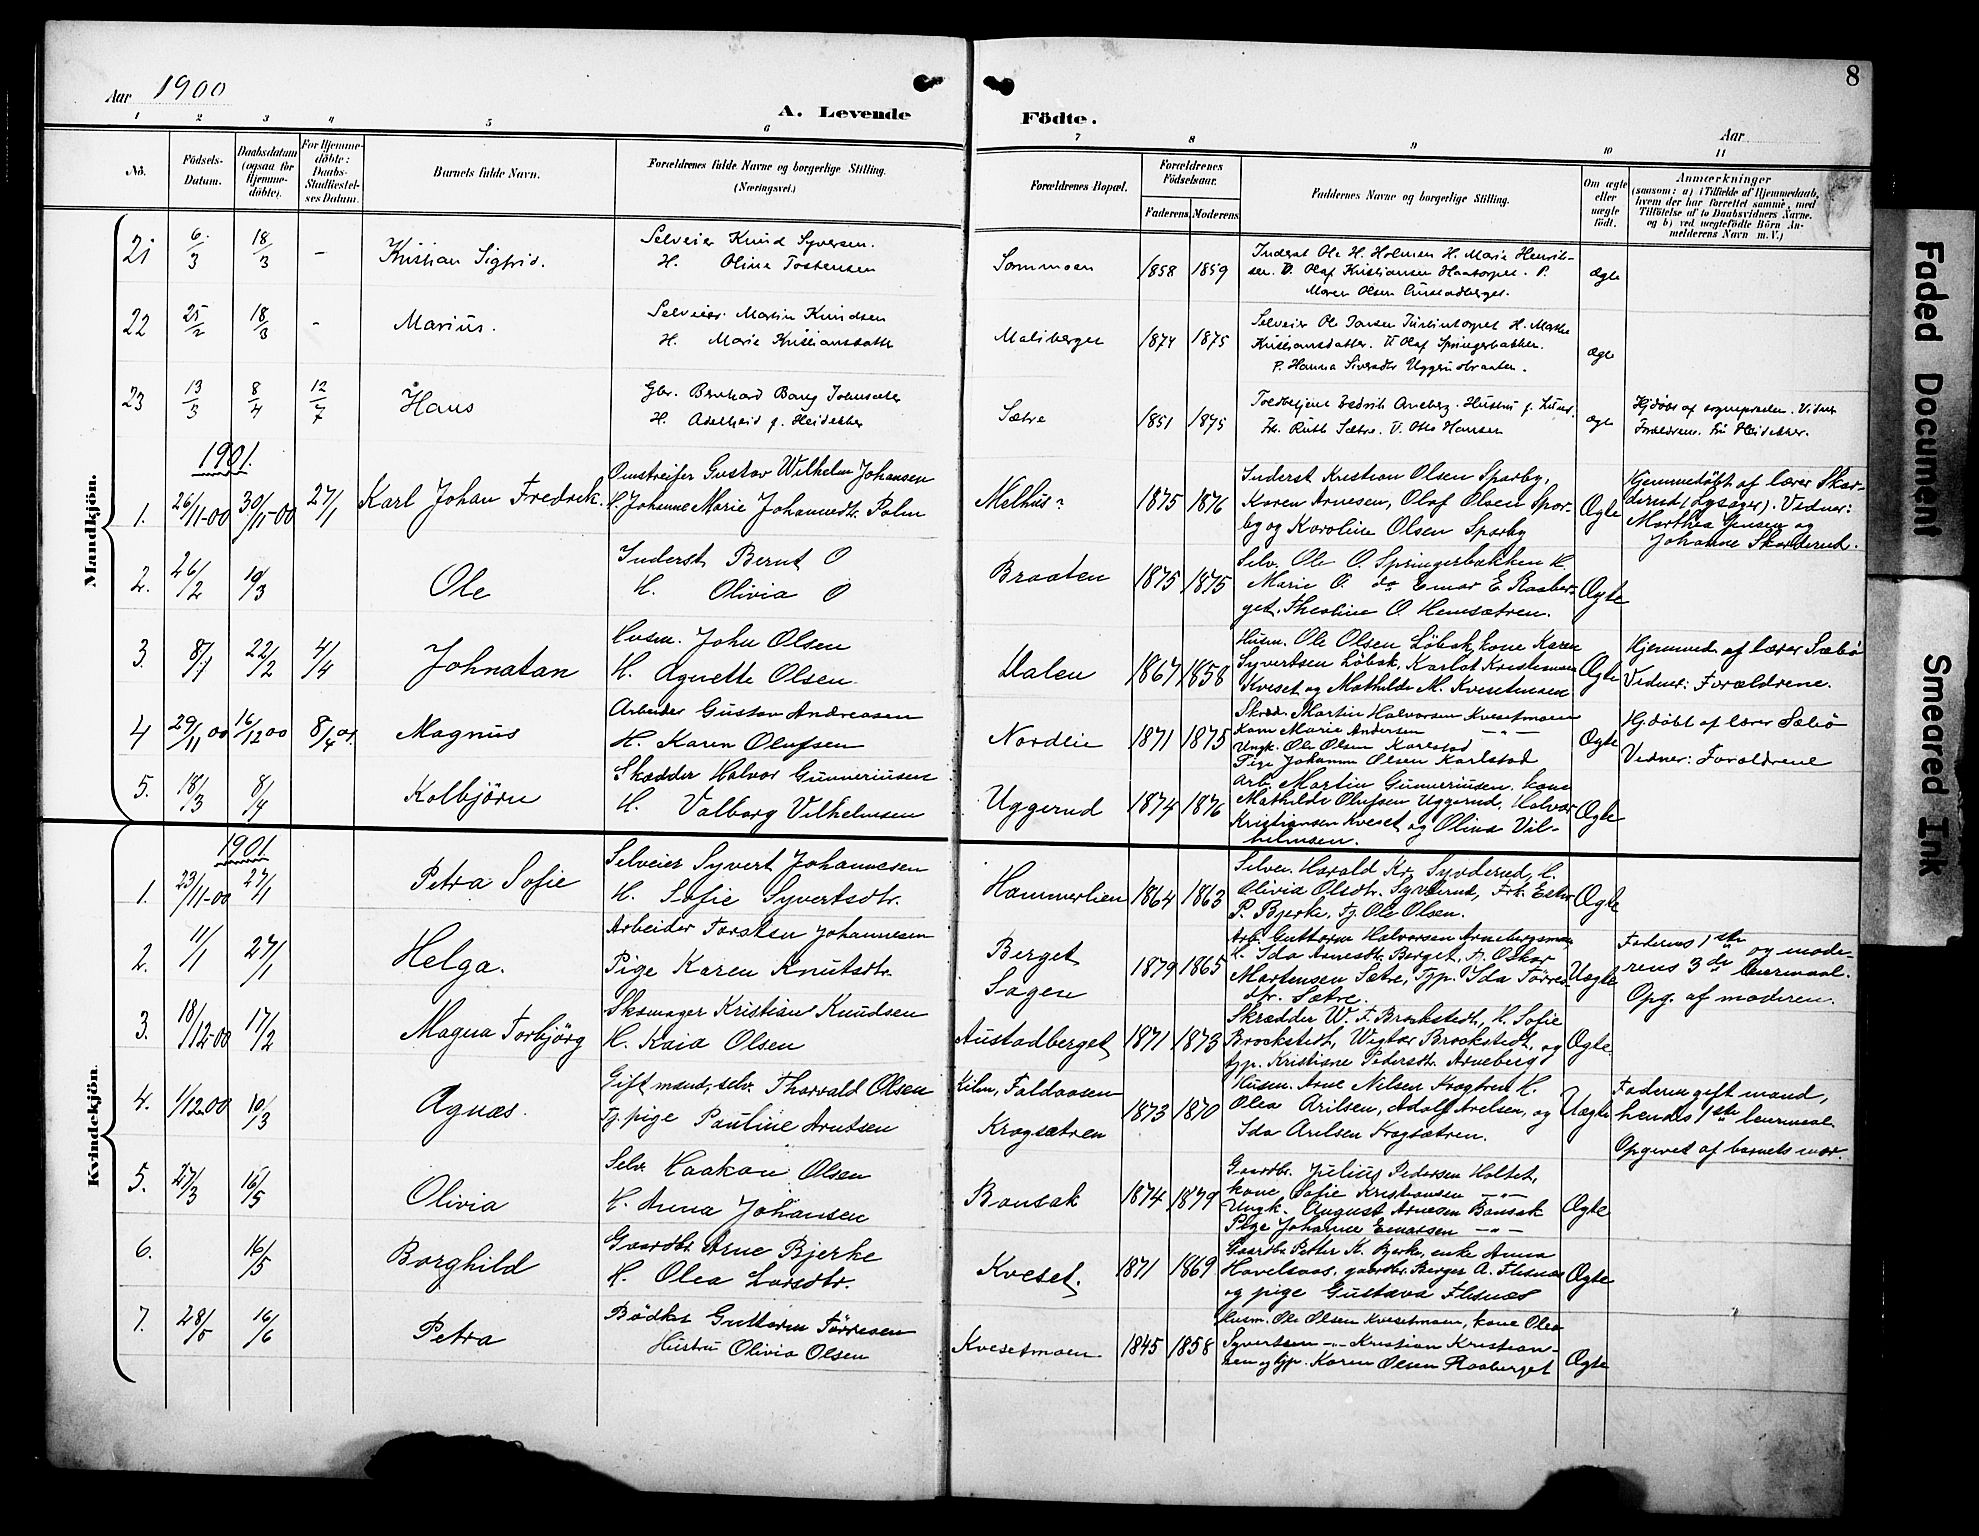 8
Aar 1900
A. Levende Födte.
Aar
1 2 3 4 5 6 7 8 9 10 11
No.
Födsels-Datum.
Daabsdatum (ogsaa for Hjemme-döbte).
For Hjemme-döbte: Daabs-Stadfæstel-ses Datum.
Barnets fulde Navn.
Forældrenes fulde Navne og borgerlige Stilling.
(Næringsvei.)
Forældrenes Bopæl.
Forældrenes Födselsaar.
Faderens Moderens
Faddernes Navne og borgerlige Stilling.
Om ægte eller uægte födt.
Anmærkninger
(saasom: a) i Tilfælde af Hjemmedaab,
hvem der har forrettet samme, med
Tilföielse af to Daabsvidners Navne.
og b) ved uægtefödte Börn An-
melderens Navn m. V.)
Mandkjön.
21 6/3 18/3 - Kristian Sigfrid.
Selveier Knud Syversen.
H. Olina Tostensen
Sommoen 1858 1859
Inderst Ole H. Holmen H. Marie Henrik-
sen. U. Olaf Kristiansen P.
Maren Olsen
ægte
22 25/2 18/3 - Marius.
Selveier Martin Knudsen
H. Marie Kristiansdatter
Maliberget 1874 1875
Selveier Ole Jansen H. Marthe
Kristiansdatter. U Olaf Springerbakken.
P. Hanna Uggerudbraaten.
ægte
23 13/3 8/4 12/7 Hans
Gbr. Bernhard Bang
H. Adelheid f. Heidekker
Sætre 1851 1875
Toldbetjent Fredrik Arneberg. Hustru f.
Fr. Ruth Sætre. U. Otto Hansen
ægte
Hjdöbt af sognepræsten. Vidner
Forældrene. Heidekker.
1901.
1. 26/11-00 30/11-00 27/1 Karl Johan Fredrik.
Omstreifer Gustav Wilhelm Johansen
H. Johanne Marie Johannesdtr. Palm
Melhus? 1875 1876
Inderst Kristian Olsen Sparby,
Karen Arnesen, Olaf Olsen Spar-
by og Karoline Olsen Sparby
Ægte
Hjemmedöbt af lærer Skar-
derud (Lysager). Vidner:
Marthea Jensen og
Johanne Skarderud.
2. 26/2 10/3 Ole
Inderst Bernt O
H. Olivia O
Braaten 1875 1875
Selv. Ole O. Springerbakken H.
Marie O. do Emar E. Raaber-
get. Thestine O. Hemsætren.
Ægte
3. 8/1 22/2 4/4 Johnatan
Husm. John Olsen
H. Agnette Olsen
Dalen 1867 1858
Husm. Ole Olsen Löbak, kone Karen
Syvertsen Löbak, Karlot Kristiansen
Kveset og Mathilde M. Kvesetmoen.
Ægte
Hjemmed. af lærer Sæbö
Vidner: Forældrene.
4 29/11 00 16/12 00 8/4 01. Magnus
Arbeider Gustav Andreasen
H. Karen Olufsen
Nordlie 1871 1875
Skræd. Martin Halvorsen Kvesetmoen
Kone Marie Andersen —"—
Ungk. Ole Olsen Karlstad
Pige Johanne Olsen Karlstad
Ægte
Hjdöbt af lærer Sæbö
Vidner: Forældrene
5. 18/3 8/4 Kolbjörn
Skrædder Halvor Gunneriusen
H. Valborg Vilhelmsen
Uggerud 1874 1876
Arb. Martin Gunneriusen, kone
Mathilde Olufsen Uggerud, Halvor
Kristiansen Kveset og Olina Vil-
helmsen.
Ægte
Kvindekjön.
1901
1. 23/11-00 27/1 Petra Sofie
Selveier Syvert Johannesen
H. Sofie Syvertsdtr.
Hammerlien 1864 1863
Selvei. Harald Kr. Syvderud, H.
Olivia Olsdtr. Syvderud, Frk. Ester
P. Bjerke, Tj. Ole Olsen.
Ægte
2. 11/1 27/1 Helga.
Arbeider Torsten Johannesen
Pige Karen Knutsdtr.
Berget
Sagen
1879 1865
Arb. Guttorm Halvorsen Arnebergsmoen
H. Ida Arnesdtr. Berget, Tj. Oskar
Martensen Sætre, Tjp. Ida Törres-
dtr. Sætre.
Uægte
Faderens 1ste og mode-
rens 3de leiermaal.
Opg. af moderen.
3. 18/12-00 17/2 Magna Torbjörg
Skomager Kristian Knudsen
H. Kaia Olsen
Austadberget 1871 1873
Skrædder W. F. Brockstedt, H. Sofie
Brockstedt, Wigtor Brockstedt, og
tjp. Kristiane Pedersdtr. Arneberg
Ægte.
4. 1/12 00 10/3 Agnæs.
Gift mand, selv. Thorvald Olsen
Tj. pige Pauline Arntsen
Kiln, Faldaasen
Krogsætren
1873 1870
Husm. Arne Nilsen Krogtren H.
Olea Arilsen, Adolf Arelsen, og
Ida Arelsen Krogsætren.
Uægte
Faderen gift mand,
hendes 1ste leiermaal
Opgivet af barnets mor.
5. 27/3 16/5 Olivia
Selv. Haakon Olsen
H. Anna Johansen
Bansak 1874 1879
Gaardbr. Julius Pedersen Holtet,
kone Sofie Kristiansen —"—
Ungk. August Arnesen Bansak
Pige Johanne Emarsen —"—
Ægte
6. 16/5 Borghild
Gaardbr. Arne Bjerke
H. Olea Larsdtr.
Kveset. 1871 1869
Gaardbr. Petter K. Bjerke, enke Anna
Havelsaas, gaardbr. Berger A. Flesnæs
og pige Gustava Flesnæs
Ægte
7. 28/5 16/6 Petra
Bödker Guttorm Törresen
Hustru Olivia Olsen
Kvesetmoen 1845 1858
Husm. Ole Olsen Kvesetmoen, kone Olea
Syvertsen —"— Kristian Kristian-
sen og tjp. Karen Olsen Raaberget
Ægte
Faded Document
Smeared Ink